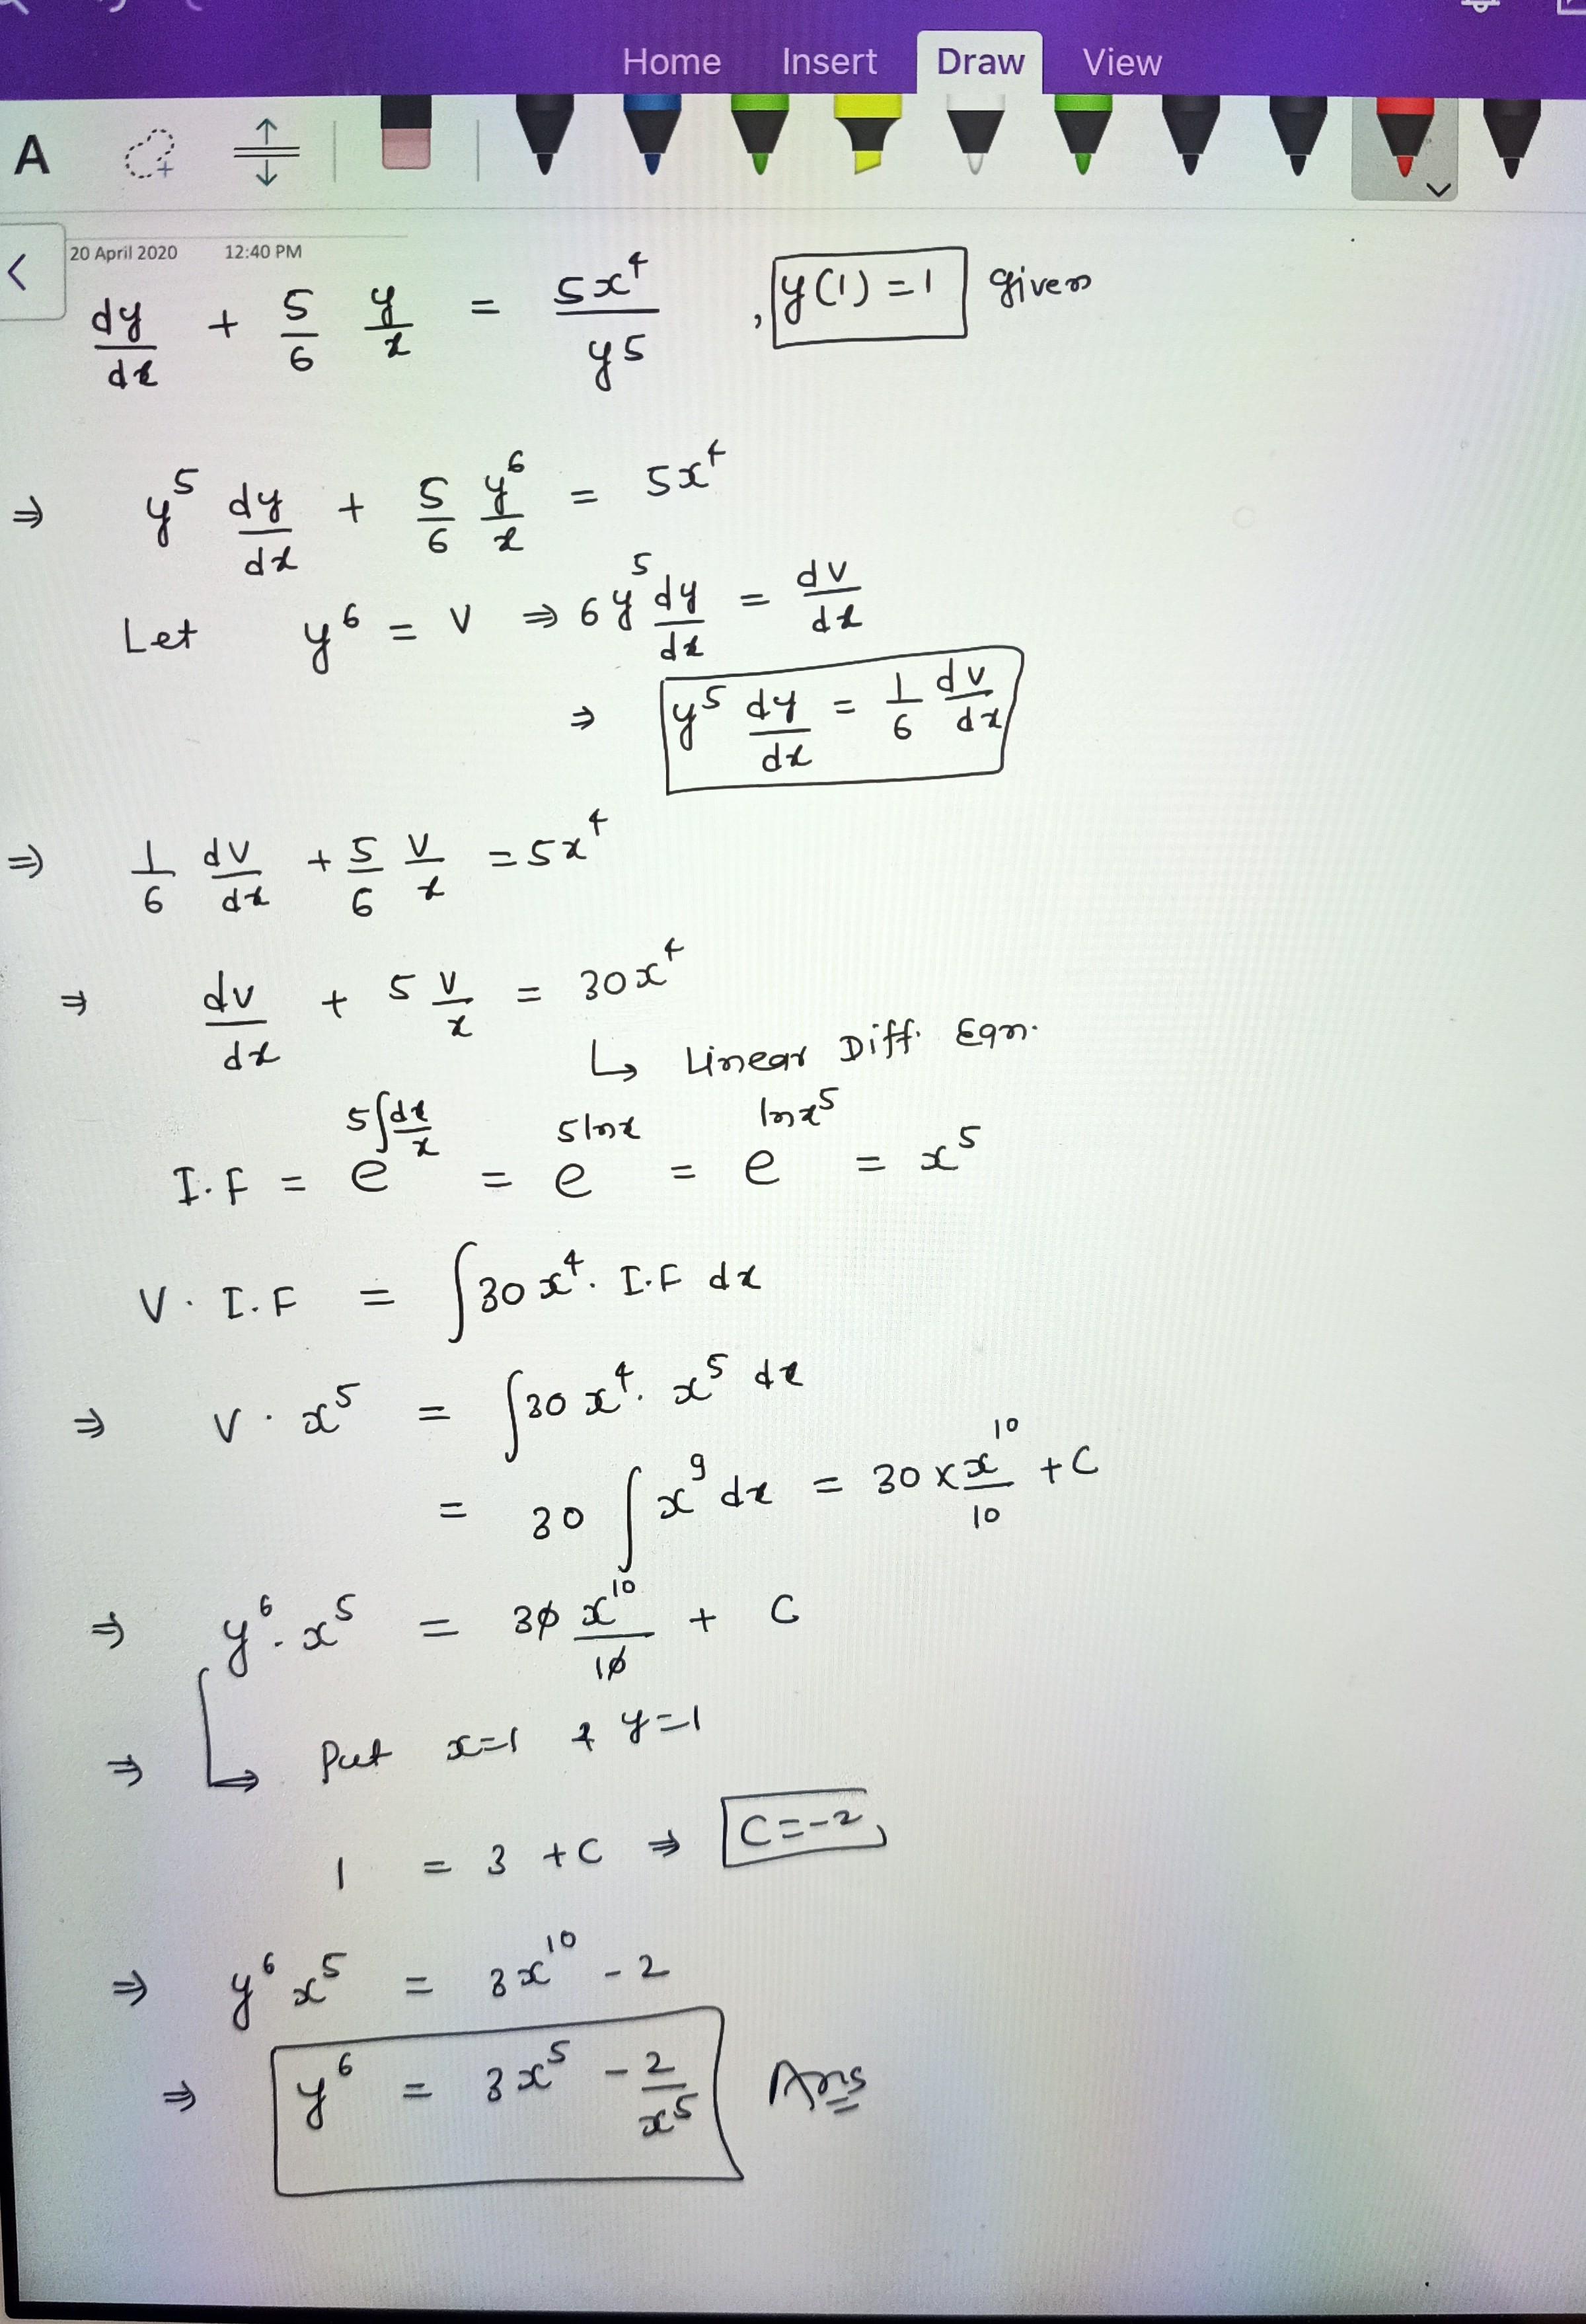 Home Insert Draw View
A
20 April 2020 12:40 PM
dy/dx + 5/6 y/x = 5x⁴/y⁵ , y(1)=1 given
⇒ y⁵ dy/dx + 5/6 y⁶/x = 5x⁴
Let y⁶ = V ⇒ 6y⁵ dy/dx = dv/dx
⇒ y⁵ dy/dx = 1/6 dv/dx
⇒ 1/6 dv/dx + 5/6 v/x = 5x⁴
⇒ dv/dx + 5 v/x = 30x⁴
↳ Linear Diff. Eqn.
I.F = e^(5∫dx/x) = e^(5lnx) = e^(lnx⁵) = x⁵
V · I.F = ∫30x⁴. I.F dx
⇒ V · x⁵ = ∫30x⁴. x⁵ dx
= 30 ∫x⁹ dx = 30 × x¹⁰/10 + C
⇒ y⁶. x⁵ = 30 x¹⁰/10 + C
⇒ ↳ Put x=1 & y=1
1 = 3 + C ⇒ C=-2,
⇒ y⁶ x⁵ = 3x¹⁰ - 2
⇒ y⁶ = 3x⁵ - 2/x⁵ Ans